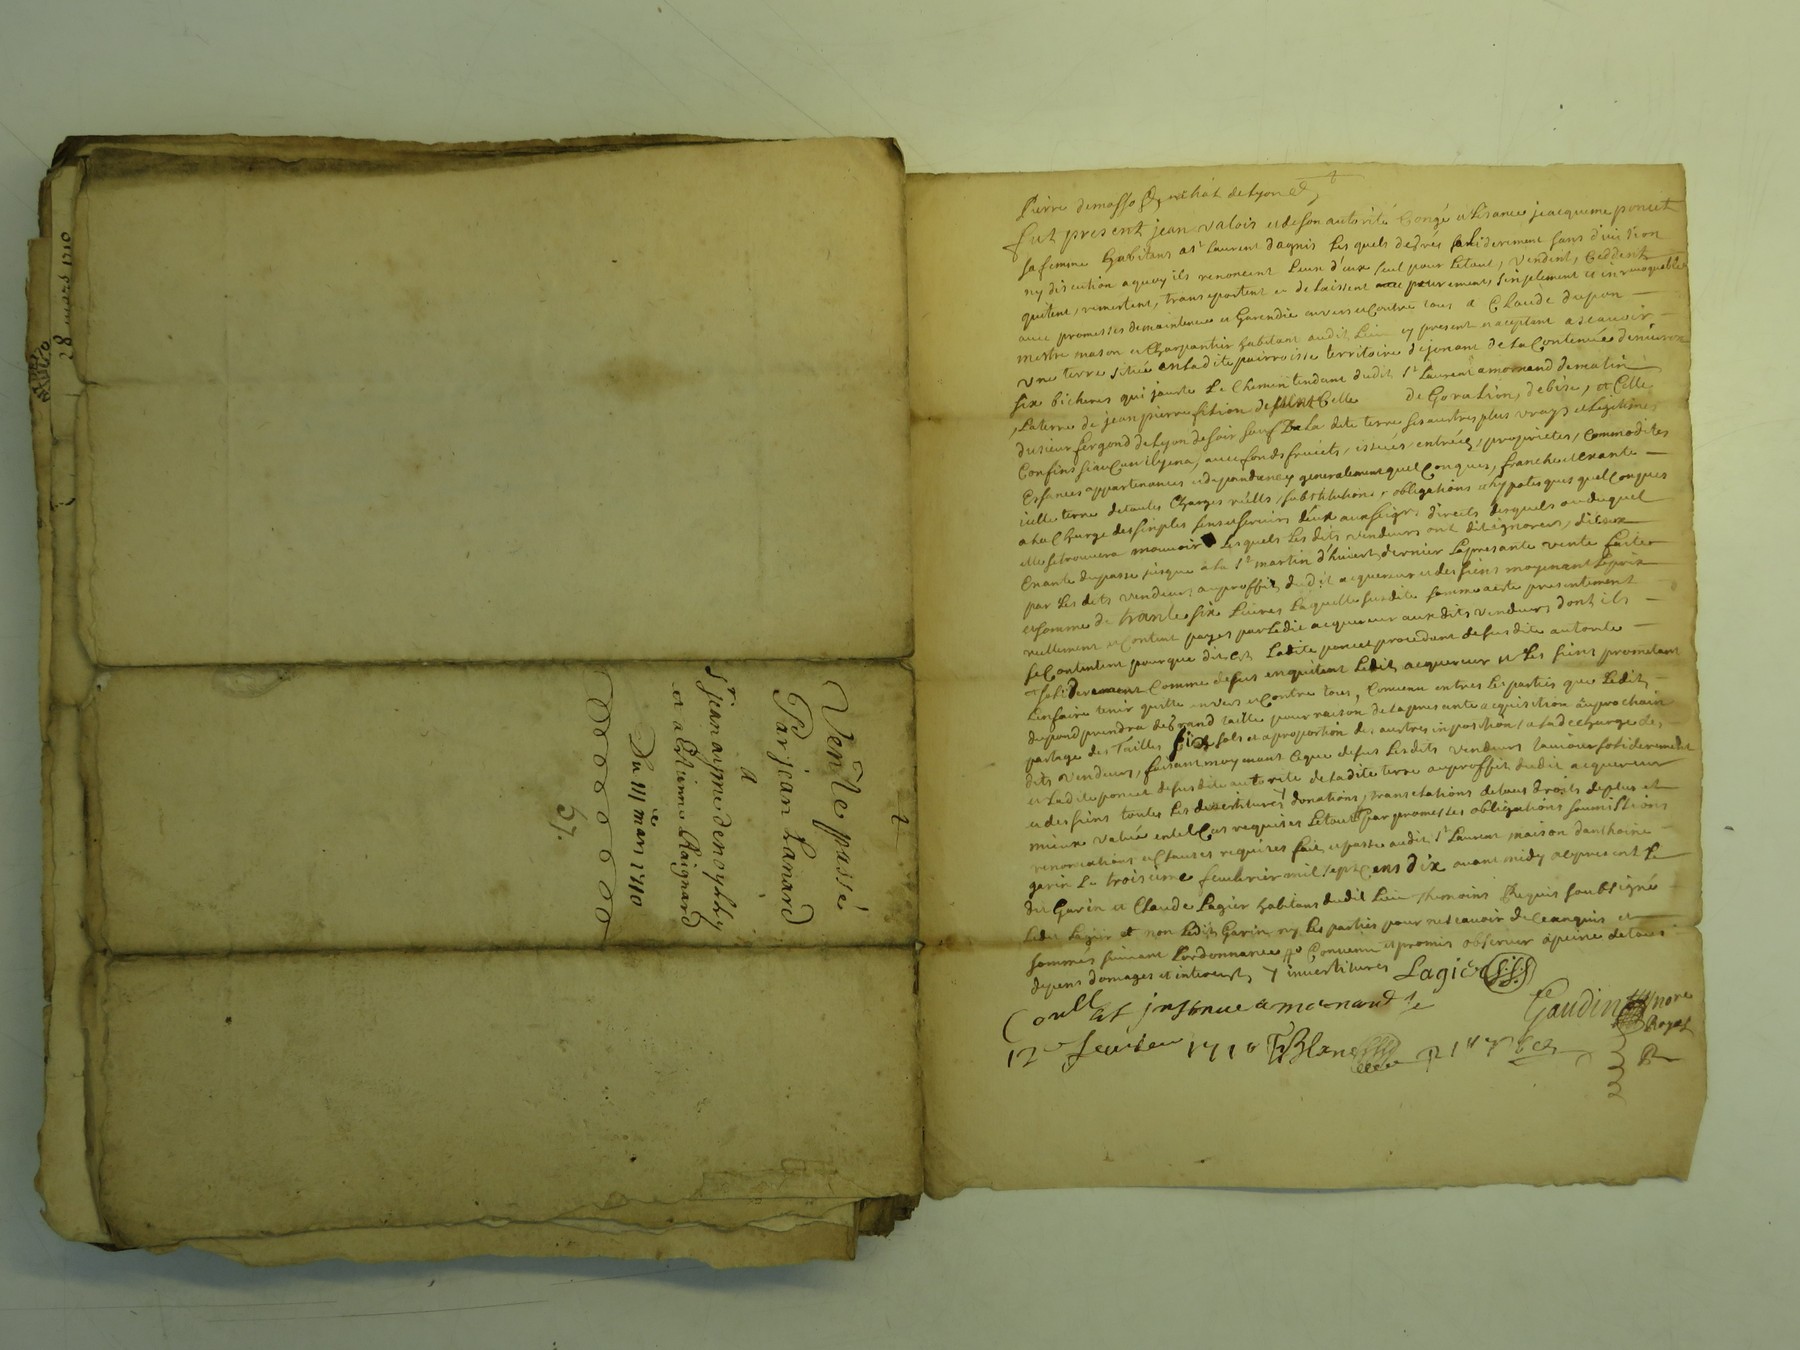 28 mars 1710
Vente passé
Par jean Lanard
a
Sr jean aymé denoylly
et a Estienne Raignard
Du iiie mars 1710
2
Pierre demasso
fut present jean valois et de son autorité Congé et Lisance jeacqueme poncet
sa femme habitans a st Laurent dagnis Lesquels de grés solideremment sans division
ny discution a quoy ils renoncent Leun d'eux seul pour Letout, vendent, Ceddent
quitent, remettent, transportent et delaissent purement, simplement et inrevoquable
avec promesses de maintenue et Garendie envers et Contre tous a Claude dupon
mestre mason et Charpantier habitant audit Lieu cy present et aceptant ascavoir
une terre située en ladite pairroisse territoire de jonane de la Contenue denviron
six bicherés qui jouxte Le Chemin tendant dudit st Laurent a mornand de matin
Laterre de jean pierre fition de Celle de Goration, de bise, et Celle
du sieur fergond de Lyon de soir sauf De La dite terre ses autres plus vrays et Legitimes
Confins siaucun ilyena, avec fonds fruicts, issués, entrées, proprietes, Commodites
Essances appartenances et dependances generalement quel Conques, franche et exante
icelle terre de toutes Charges reells, substitutions, obligations et hypoteques quel Conques
a La Charge des simples sens et servis deux aux seigrs directs desquels ou duquel
elle se trouvera mouvoir Lesquels Les dits vendeurs ont dit ignorer, d'iceux
Exante du passé jusque a la st martin d'hivert dernier Lapresante vente faite
par Les dits vendeurs au proffit du dit acquereur et des siens moyenant Leprix
et somme de trante six Livres Laquelle susdite somme aeste presentement
reellement et Content payes par Ledit acquereur aux dits vendeurs dont ils
se Contentent pourque dit est Ladite poncet procedant de susdite autorite
solideremment Comme dessus en quitent Ledit acquereur et Les siens prometant
Lenfaire tenir quitte envers et Contre tous, Convenu entres Les parties que Ledit
dupond prendra de Grand taille pour raison de lapresante acquisition auprochain
partage des Tailles six sols et a proportion des autres inposition, a la decharge des
dits vendeurs, faisant moyenant ce que dessus Les dits vendeurs Lauinour solideremment
et Ladite poncet de susdite autorite de Ladite terre au proffit dudit acquereur
et des siens toutes Les devestitures donations, translations de tous droits de plus et
mieux value entel Cas requises Letout par promesses obligations soumissions
renonciations et Clauses requises fait et passé audit st Laurent maison danthoine
garin Le troisieme feuvrier mil sept Cens dix avant midy a cy present Le
dit Garin et Claude Lagier habitans dudit Lieu themoins Requis soubsigné
Ledit Lagier et non Ledit Garin ny Les parties pour ne scavoir de Ceanquis et
sommés suivant Lordonnance Convenu et promis observer apeine de tous
depens domages et interests investitures Lagier
Conlle et insinué a mornand Le Gaudin nore
12e feuvrier 1710 Blanc Royal